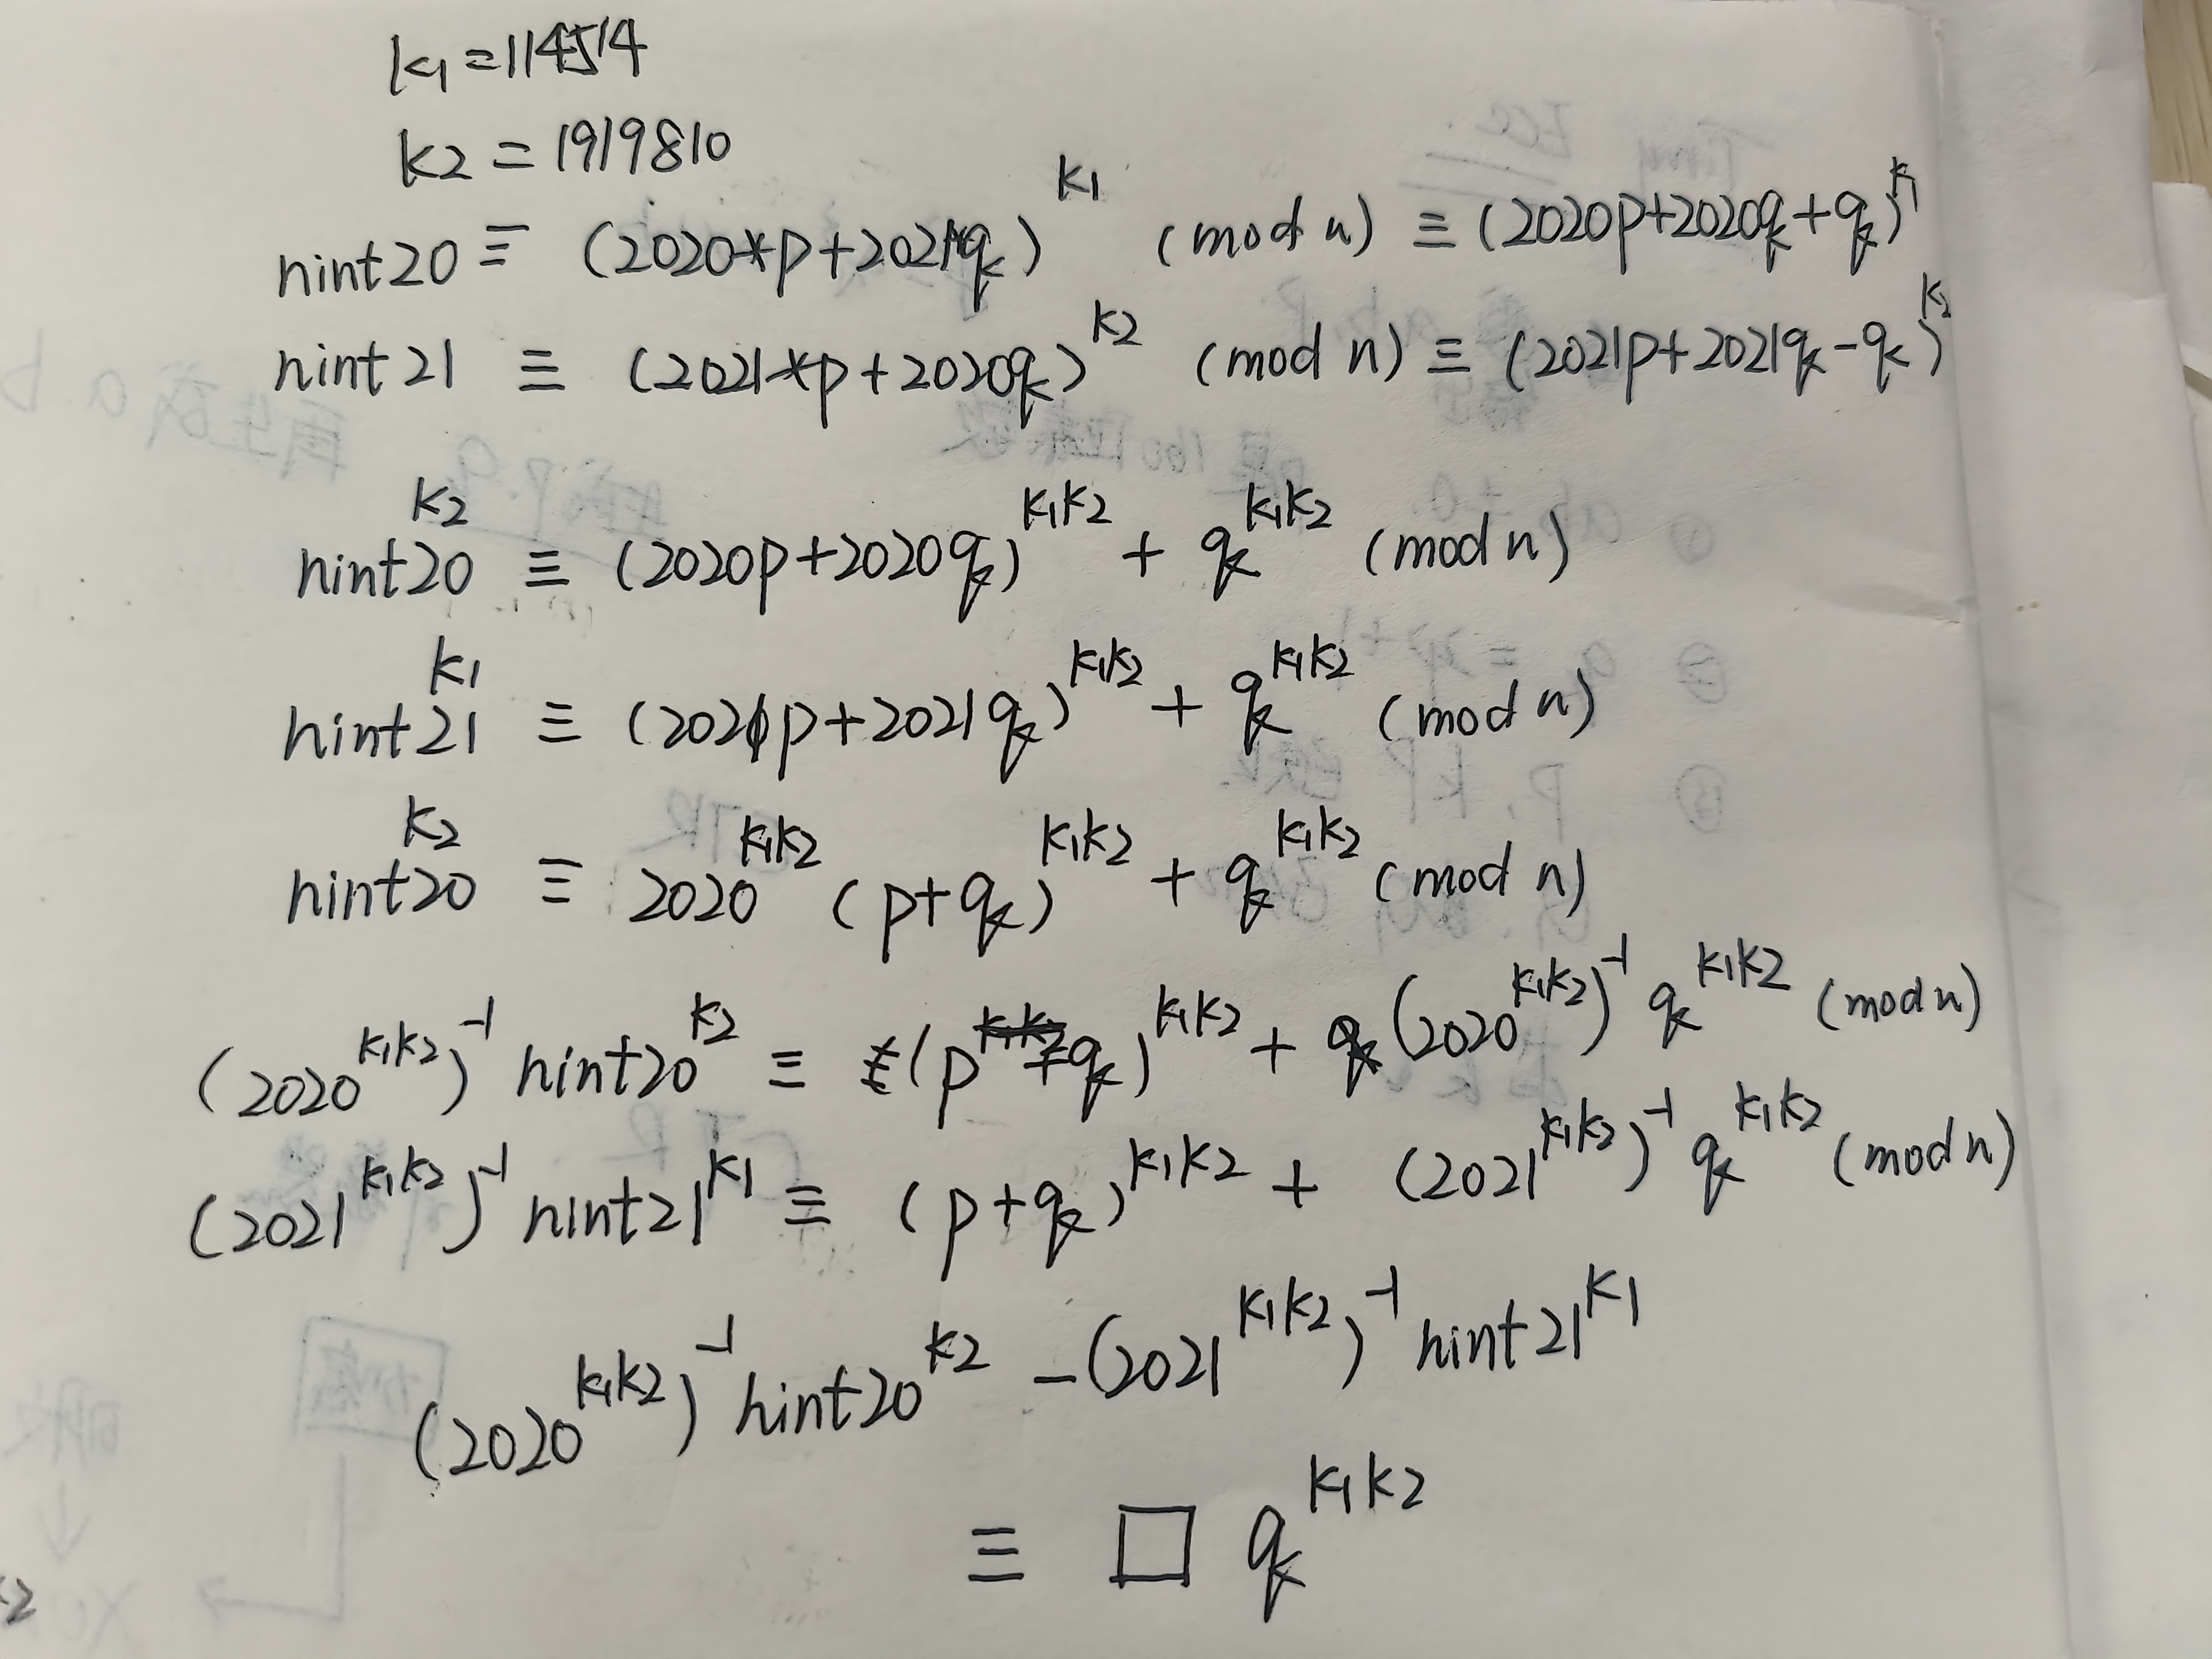 k1 = 114514
k2 = 1919810
hint20 ≡ (2020*p+2021*q)^k1 (mod n) ≡ (2020p+2020q+q)^k1
hint21 ≡ (2021*p+2020q)^k2 (mod n) ≡ (2021p+2021q-q)^k2
hint20^k2 ≡ (2020p+2020q)^k1k2 + q^k1k2 (mod n)
hint21^k1 ≡ (2021p+2021q)^k1k2 + q^k1k2 (mod n)
hint20^k2 ≡ 2020^k1k2 (p+q)^k1k2 + q^k1k2 (mod n)
(2020^k1k2)^-1 hint20^k2 ≡ (p+q)^k1k2 + (2020^k1k2)^-1 q^k1k2 (mod n)
(2021^k1k2)^-1 hint21^k1 ≡ (p+q)^k1k2 + (2021^k1k2)^-1 q^k1k2 (mod n)
(2020^k1k2)^-1 hint20^k2 - (2021^k1k2)^-1 hint21^k1
≡ □ q^k1k2